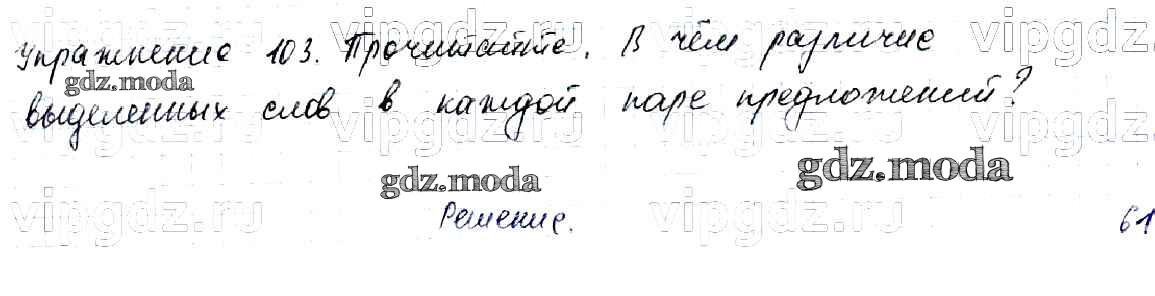 vipgdz.ru vipgdz.ru vipgdz.ru vipgdz
Упражнение 103. Прочитайте. В чём различие
gdz.moda
выделенных слов в каждой паре предложений?
vipgdz.ru vipgdz.ru vipgdz.ru vipgdz
gdz.moda gdz.moda
vipgdz.ru vipgdz.ru vipgdz.ru vipgdz
Решение. 61